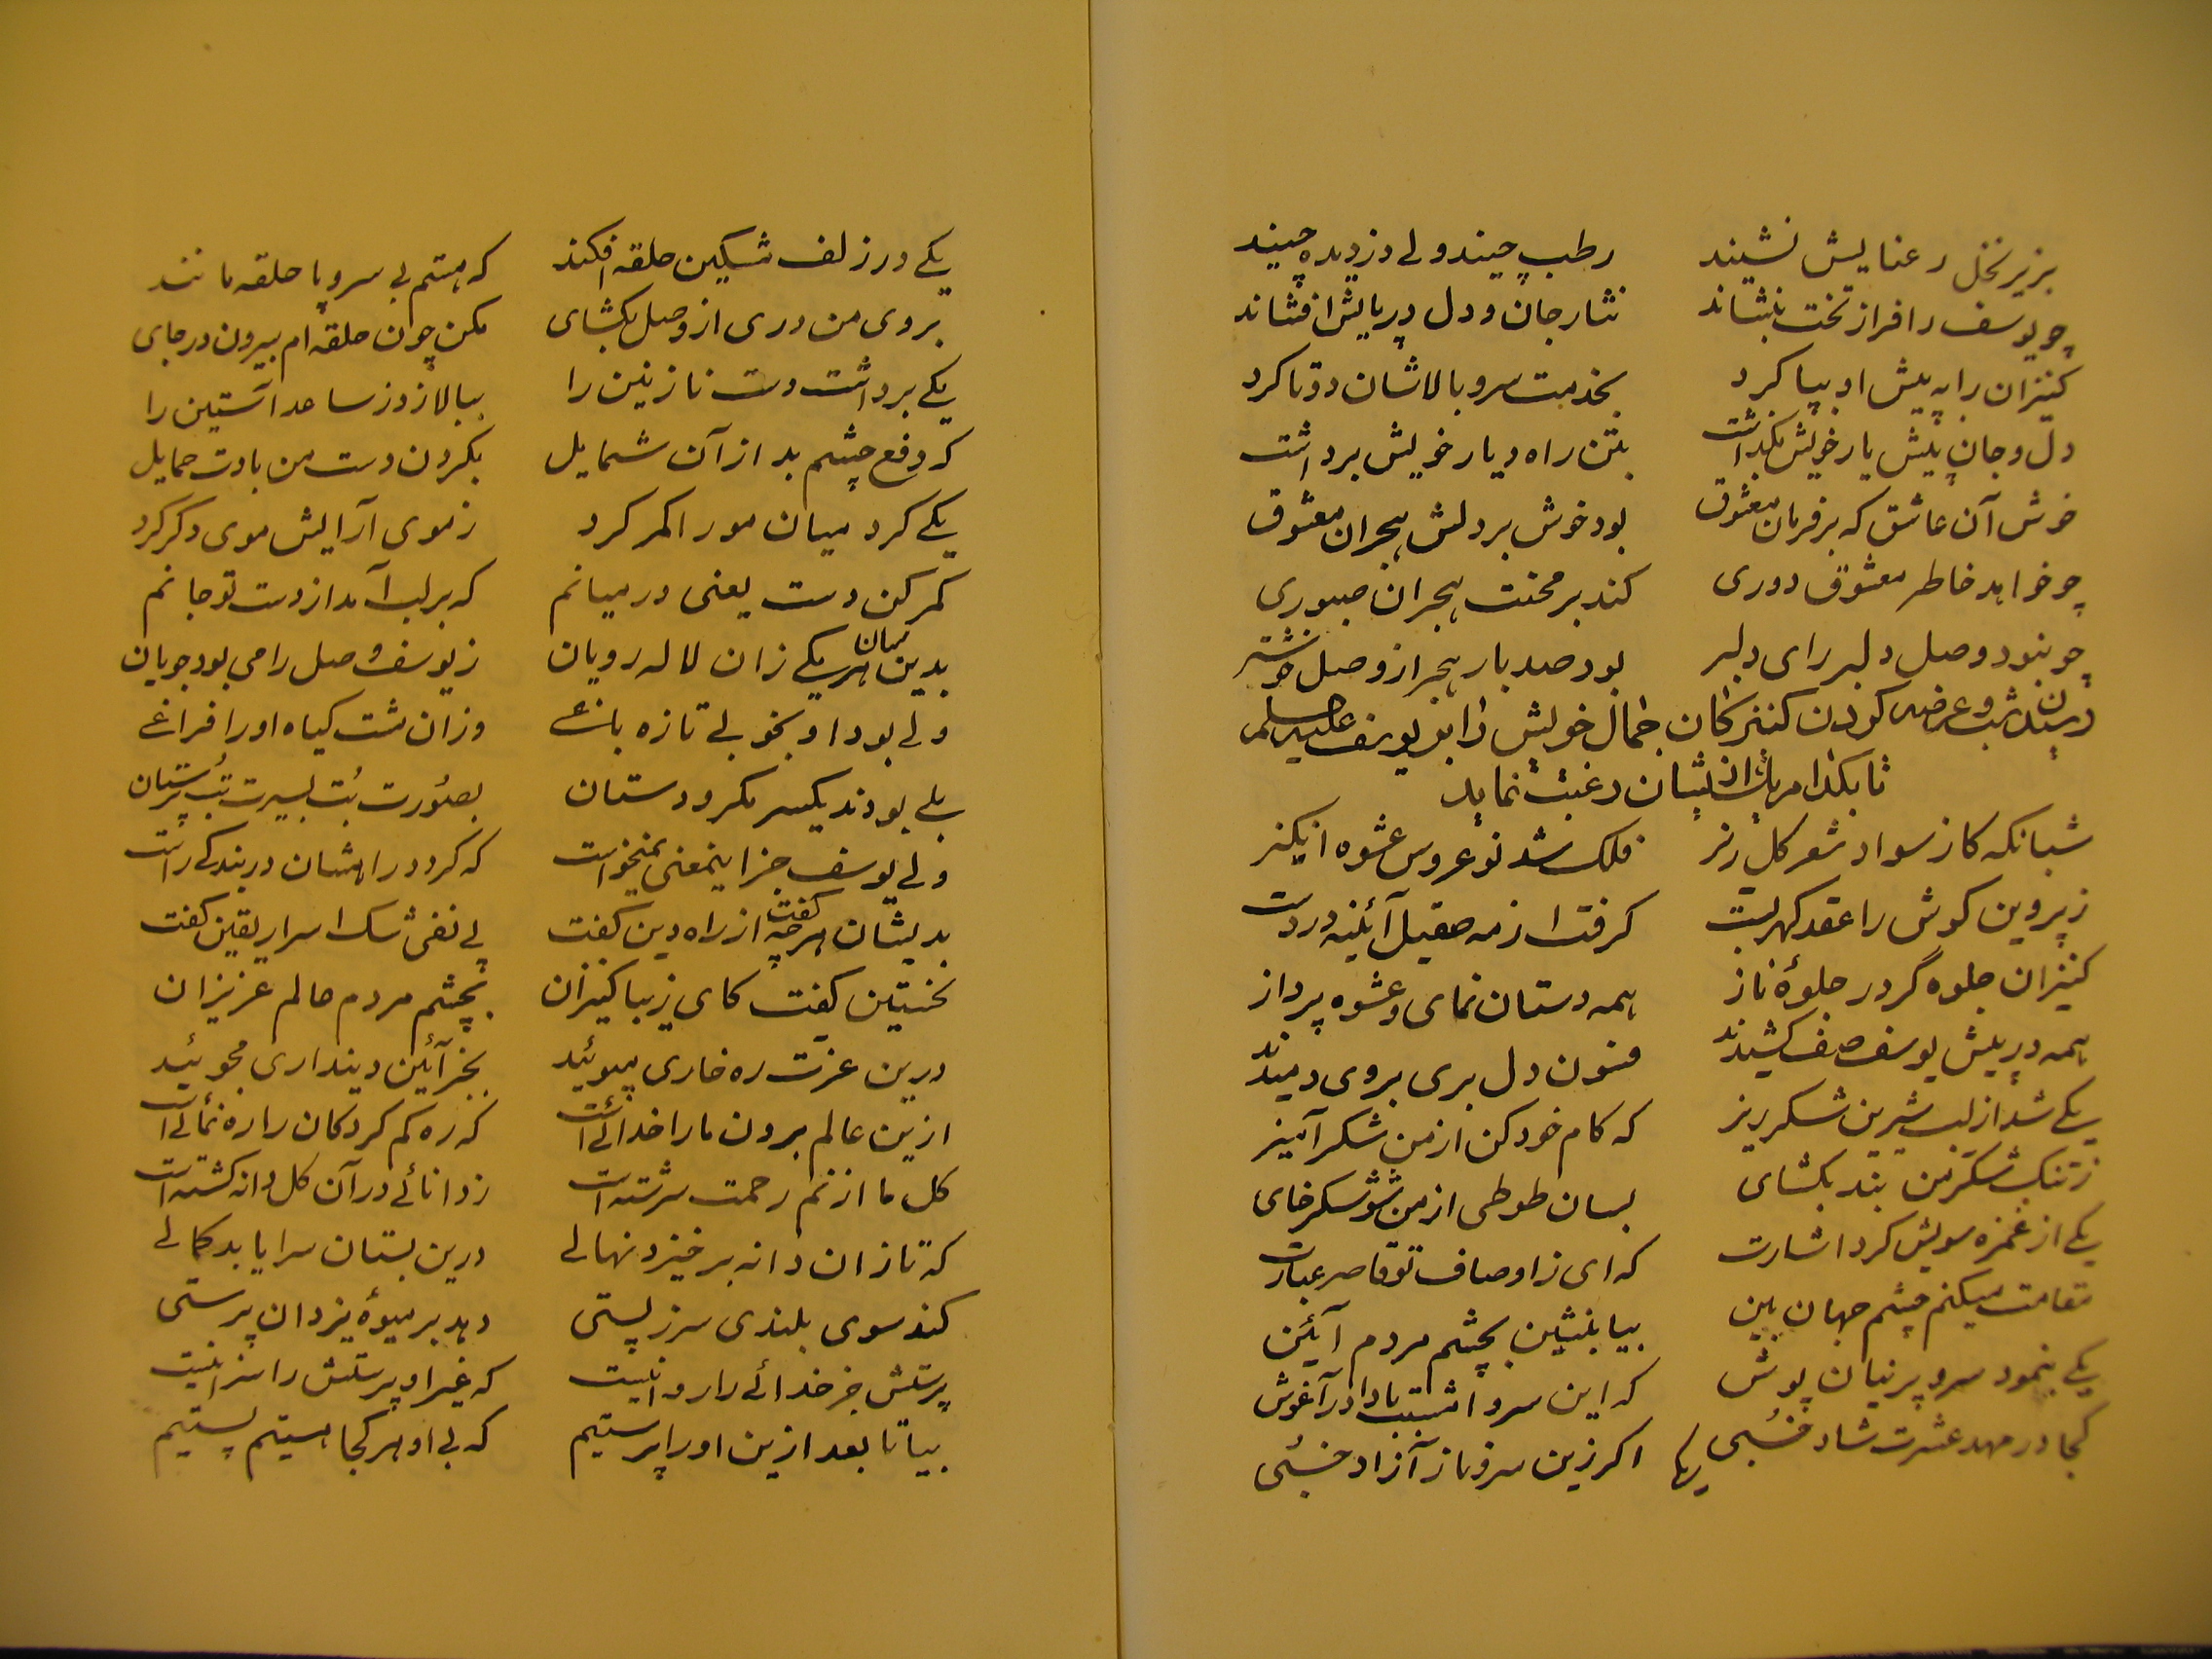 بزیر نخل رعنایش نشیند رطب چیند ولے دزدیده چیند
چو یوسف را فراز تخت بنشاند نثار جان و دل در پایش افشاند
کنیزان را به پیش او بپا کرد بخدمت سرو بالاشان دوتا کرد
دل و جان پیش یار خویش بگذاشت بتن راه دیار خویش برداشت
خوش آن عاشق که بر فرمان معشوق بود خوش بر دلش هجران معشوق
چو خواهد خاطر معشوق دوری کند بر محنت هجران صبوری
چو نبود وصل دلبر رای دلبر بود صد بار هجر از وصل خوشتر
شب و عرضه کردن کنیزکان جمال خویش را بر یوسف علیه السلام
تا بکدام یک از ایشان رغبت نماید
شبانکه کز سواد شعر کل ریز فلک شد نو عروس عشوه انکیز
ز پروین کوش را عقد کهر بست کرفت از مه صقیل آئینه در دست
کنیزان جلوه گر در جلوهٔ ناز همه دستان نمای و عشوه پرداز
همه در پیش یوسف صف کشیدند فسون دل بری بروی دمیدند
یکے شد از لب شیرین شکر ریز که کام خود کن از من شکر آمیز
ز تنک شکر من بند بکشای بسان طوطی از من شو شکر خای
یکے از غمزه سویش کرد اشارت که ای ز اوصاف تو قاصر عبارت
مقامت میکنم چشم جهان بین بیا بنشین بچشم مردم آئین
یکے بنمود سرو پرنیان پوش که این سرو امشبت بادا در آغوش
کجا در مهد عشرت شاد خسبی اکر زین سرو ناز آزاد خسبی
یکے در زلف مشکین حلقه افکند که هستم بے سر و پا حلقه مانند
بروی من دری از وصل بکشای مکن چون حلقه ام بیرون در جای
یکے برداشت دست نازنین را ببالا زد ز ساعد آستین را
که دفع چشم بد از آن شمایل بکردن دست من بادت حمایل
یکے کرد میان مو را کمر کرد ز موی آرایش موی دکر کرد
کمر کن دست یعنی در میانم که بر لب آمد از دست تو جانم
بدینسان هر یکے زان لاله رویان ز یوسف وصل را می بود جویان
ولے بود او بخوبے تازه باغے وزان مشت کیاه او را فراغے
بلے بودند یکسر مکر و دستان بصورت بُت بسیرت بُت پرستان
ولے یوسف جز اینمعنی نمیخواست که کردد راهشان در بندکے راست
بدیشان هر چه کفت از راه دین کفت پے نفی شک اسرار یقین کفت
نخستین کفت کای زیبا کنیزان بچشم مردم عالم عزیزان
درین عزت ره خاری مپوئید بجز آئین دینداری مجوئید
ازین عالم برون ما را خدائےاست که ره کم کردکان را ره نمائےاست
کل ما از نم رحمت سرشته است ز دانائے در آن کل دانه کشته است
که تا زان دانه برخیزد نهالے درین بستان سرا یابد کمالے
کند سوی بلندی سر ز پستی دهد بر میوهٔ یزدان پرستی
پرستش جز خدائے را روا نیست که غیر او پرستش را سزا نیست
بیا تا بعد ازین او را پرستیم که بے او هر کجا هستیم پستیم